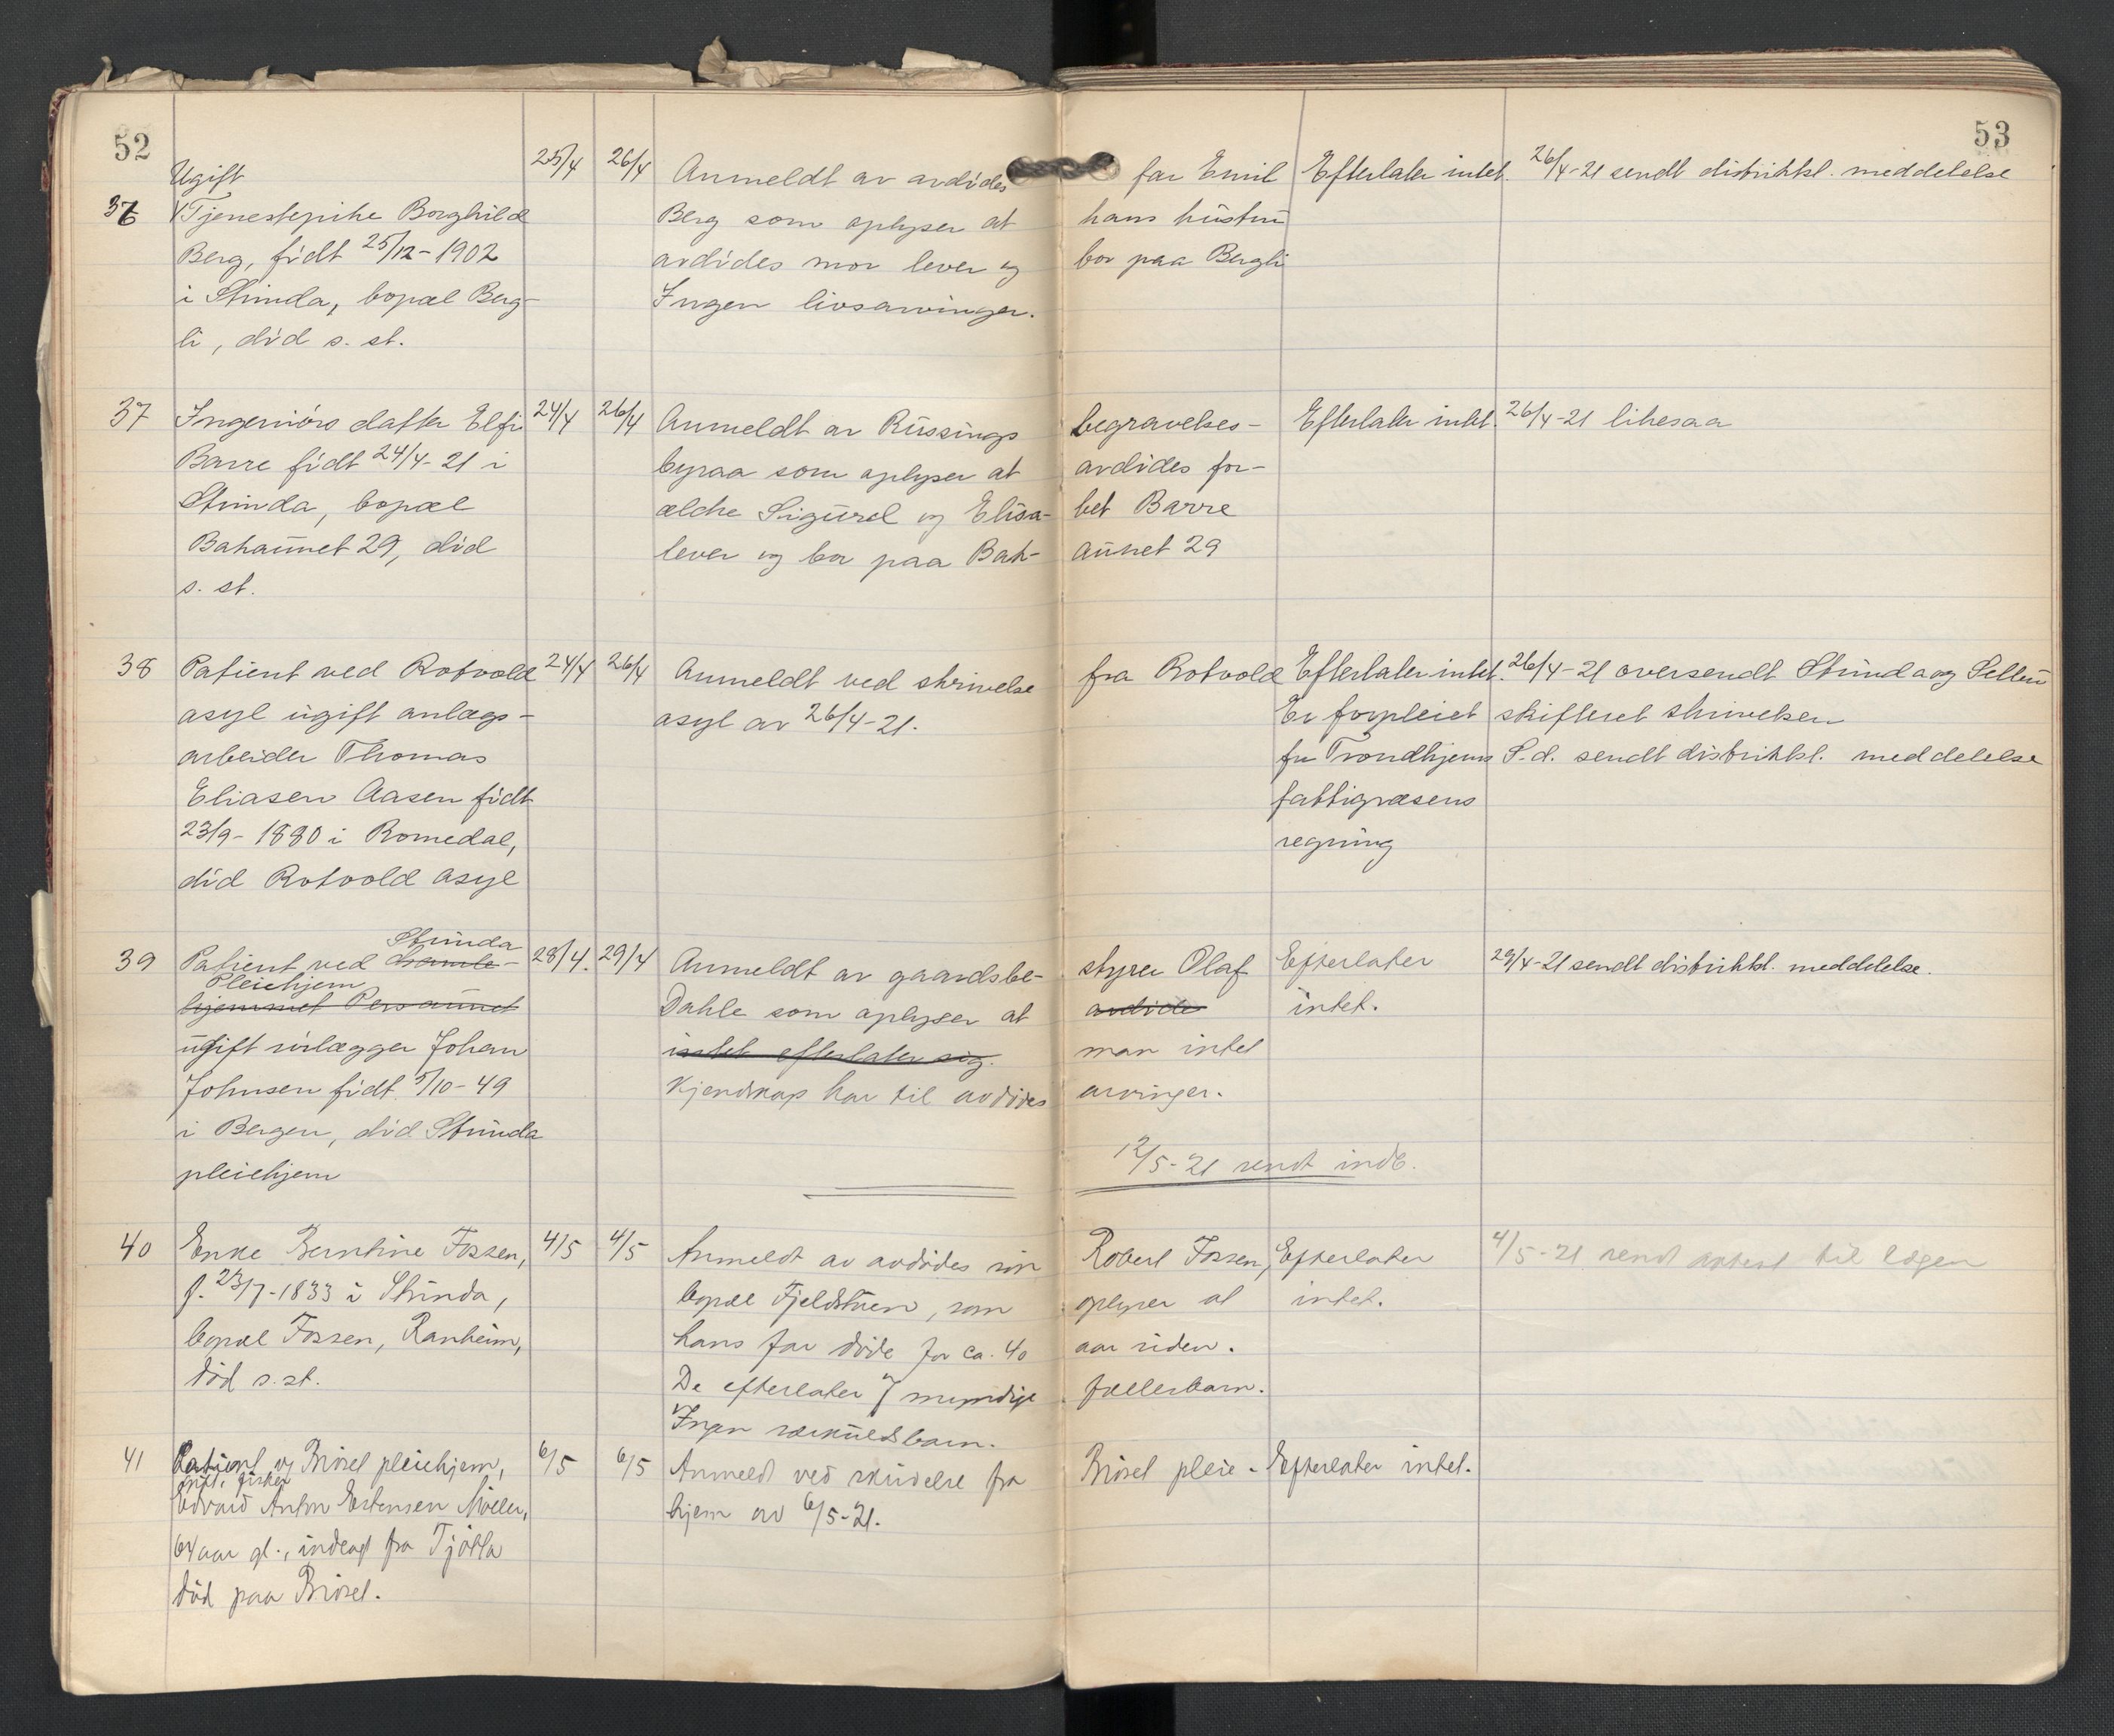 52
53
Ugift 25/4 26/4 Anmeldt av avdödes far Emil Efterlater intet. 26/4-21 sendt distriktsl. meddelelse
36 Tjenestepike Borghild Berg som oplyser at hans hustru
Berg, födt 25/12-1902 avdödes mor lever og bor paa Bergli
i Strinda, bopæl Berg- Ingen livsarvinger.
li, död s. st.
37 Ingeniörs datter Elfi 24/4 26/4 Anmeldt av Rüssings begravelses- Efterlater intet. 26/4-21 likesaa
Barre födt 24/4-21 i byraa som oplyser at avdödes for-
Strinda, bopæl ældre Sigurd og Elisa- bet Barre
Bakaunet 29, död lever og bor paa Bak- aunet 29
s. st.
38 Patient ved Rotvold 24/4 26/4 Anmeldt ved skrivelse fra Rotvold Efterlater intet. 26/4-21 oversendt Strinda og Selbu
asyl ugift anlægs- asyl av 26/4-21. Er forpleiet skifteret skrivelsen
arbeider Thomas for Trondhjems S.d. sendt distriktsl. meddelelse
Eliasen Aasen födt fattigvæsens
23/9-1880 i Romedal, regning
död Rotvold asyl
Strinda
39 Patient ved Gamle- 28/4. 29/4 Anmeldt av gaardsbe- styrer Olaf Efterlater 29/4-21 sendt distriktsl. meddelelse.
Pleiehjem
hjemmet Persaunet Dahle som oplyser at avdöde intet.
ugift inlægger Johan intet efterlater sig. man intet
Johnsen födt 5/10-49 Kjendskap har til avdödes arvinger.
i Bergen, död Strinda
pleiehjem
12/5-21 sendt indb.
40 Enke Berntine Fossen, 4/5 4/5 Anmeldt av avdödes sön Robert Fossen, Efterlater 4/5-21 sendt attest til lægen
f. 23/7-1833 i Strinda, bopæl Fjeldstuen, som oplyser at intet.
bopæl Fossen, Ranheim, hans far döde for ca. 40 aar siden.
död s.st. De efterlater 7 myndige fællesbarn.
Ingen særkuldsbarn.
41 Patient v/ Bröset pleiehjem, 6/5 6/5 Anmeldt ved skrivelse fra Bröset pleie- Efterlater intet.
ugift, fisker
Edvard Anton Estensen Möller, hjem av 6/5-21.
64 aar gl., indlagt fra Tjötta
död paa Bröset.